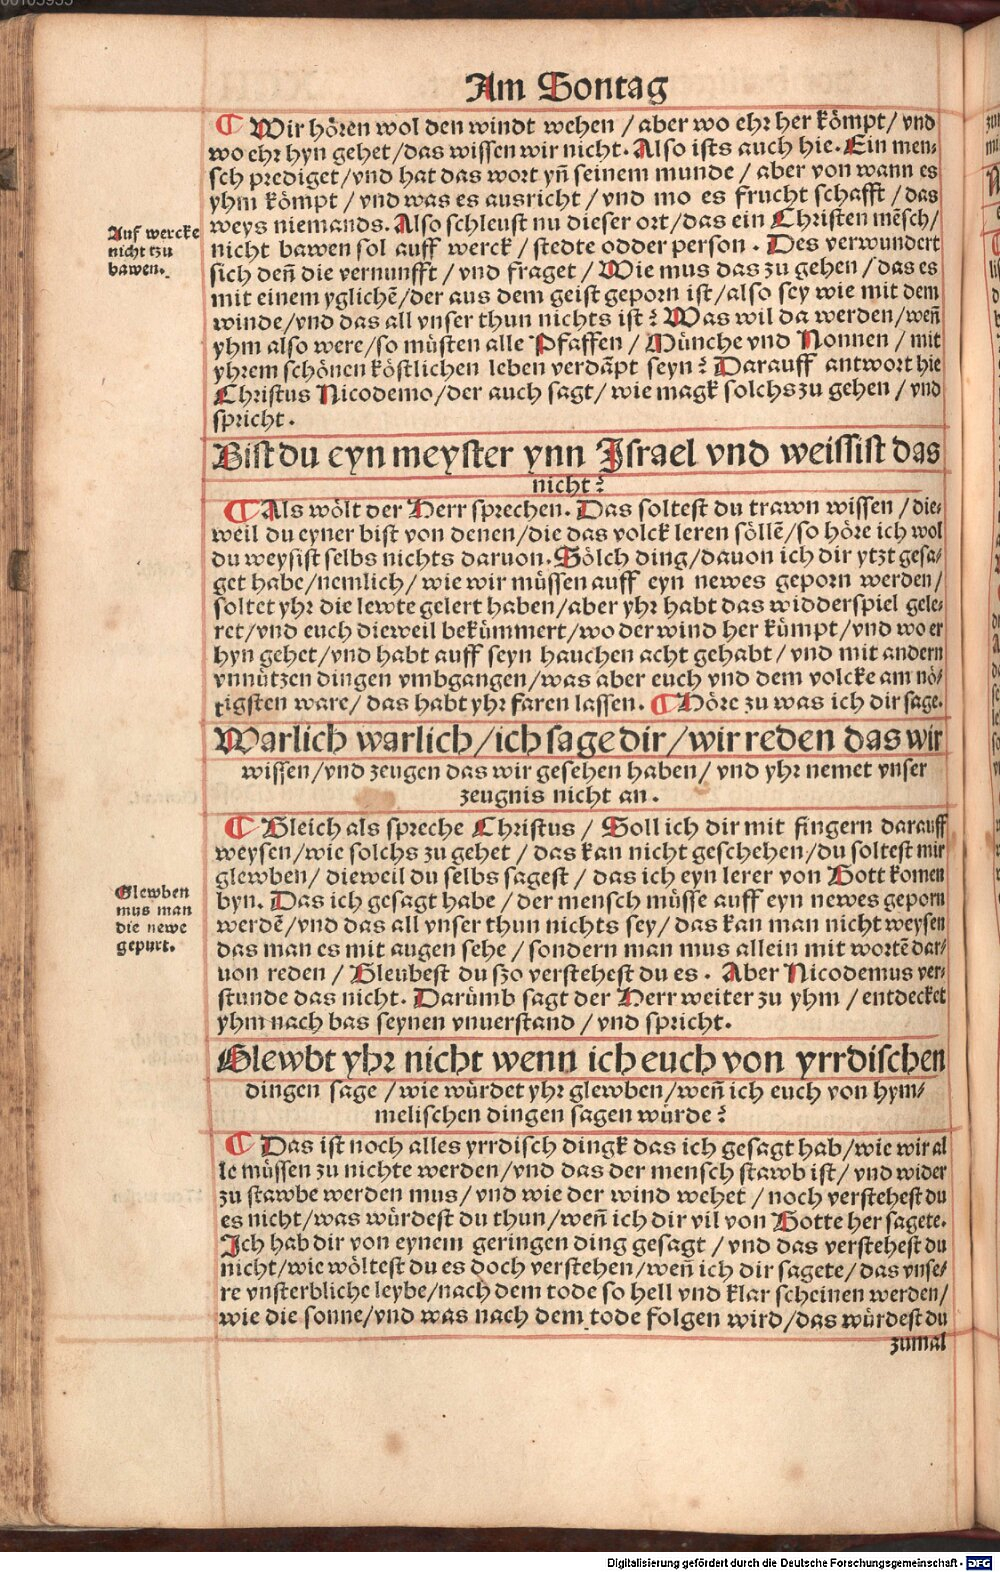 Am Sontag
¶ Wir hören wol den windt wehen / aber wo ehr her kömpt / vnd
wo ehr hyn gehet / das wissen wir nicht. Also ists auch hie. Ein men⸗
sch prediget / vnd hat das wort yñ seinem munde / aber von wann es
yhm kömpt / vnd was es ausricht / vnd mo es frucht schafft / das
weys niemands. Also schleust nu dieser ort / das ein Christen mẽsch /
Auf wercke
nicht tzu
bawen.
nicht bawen sol auff werck / stedte odder person . Des verwundert
sich deñ die vernunfft / vnd fraget / Wie mus das zu gehen / das es
mit einem yglichẽ / der aus dem geist geporn ist / also sey wie mit dem
winde / vnd das all vnser thun nichts ist? Was wil da werden / weñ
yhm also were / so müsten alle Pfaffen / Münche vnd Nonnen / mit
yhrem schönen köstlichen leben verdãpt seyn? Darauff antwort hie
Christus Nicodemo / der auch sagt / wie magk solchs zu gehen / vnd
spricht.
Bist du eyn meyster ynn Israel vnd weissist das
nicht?
¶ Als wölt der Herr sprechen. Das soltest du trawn wissen / die⸗
weil du eyner bist von denen / die das volck leren söllẽ / so höre ich wol
du weysist selbs nichts daruon. Sölch ding / dauon ich dir ytzt gesa⸗
get habe / nemlich / wie wir müssen auff eyn newes geporn werden /
soltet yhr die lewte gelert haben / aber yhr habt das widderspiel gele⸗
ret / vnd euch dieweil bekümmert / wo der wind her kümpt / vnd wo er
hyn gehet / vnd habt auff seyn hauchen acht gehabt / vnd mit andern
vnnützen dingen vmbgangen / was aber euch vnd dem volcke am nö⸗
tigsten ware / das habt yhr faren lassen. ¶ Höre zu was ich dir sage.
Warlich warlich / ich sage dir / wir reden das wir
wissen / vnd zeugen das wir gesehen haben / vnd yhr nemet vnser
zeugnis nicht an .
¶ Gleich als spreche Christus / Soll ich dir mit fingern darauff
weysen / wie solchs zu gehet / das kan nicht geschehen / du soltest mir
glewben / dieweil du selbs sagest / das ich eyn lerer von Gott komen
Glewben
mus man
die newe
gepurt.
byn. Das ich gesagt habe / der mensch müsse auff eyn newes geporn
werdẽ / vnd das all vnser thun nichts sey / das kan man nicht weysen
das man es mit augen sehe / sondern man mus allein mit wortẽ dar⸗
uon reden / Gleubest du szo verstehest du es . Aber Nicodemus ver⸗
stunde das nicht. Darümb sagt der Herr weiter zu yhm / entdecket
yhm nach bas seynen vnuerstand / vnd spricht.
Glewbt yhr nicht wenn ich euch von yrrdischen
dingen sage / wie würdet yhr glewben / weñ ich euch von hym⸗
melischen dingen sagen würde?
¶ Das ist noch alles yrrdisch dingk das ich gesagt hab / wie wir al
le müssen zu nichte werden / vnd das der mensch stawb ist / vnd wider
zu stawbe werden mus / vnd wie der wind wehet / noch verstehest du
es nicht / was würdest du thun / weñ ich dir vil von Gotte her sagete.
Ich hab dir von eynem geringen ding gesagt / vnd das verstehest du
nicht / wie wöltest du es doch verstehen / weñ ich dir sagete / das vnse⸗
re vnsterbliche leybe / nach dem tode so hell vnd klar scheinen werden /
wie die sonne / vnd was nach dem tode folgen wird / das würdest du
zumal
Digitalisierung gefördert durch die Deutsche Forschungsgemeinschaft - DFG